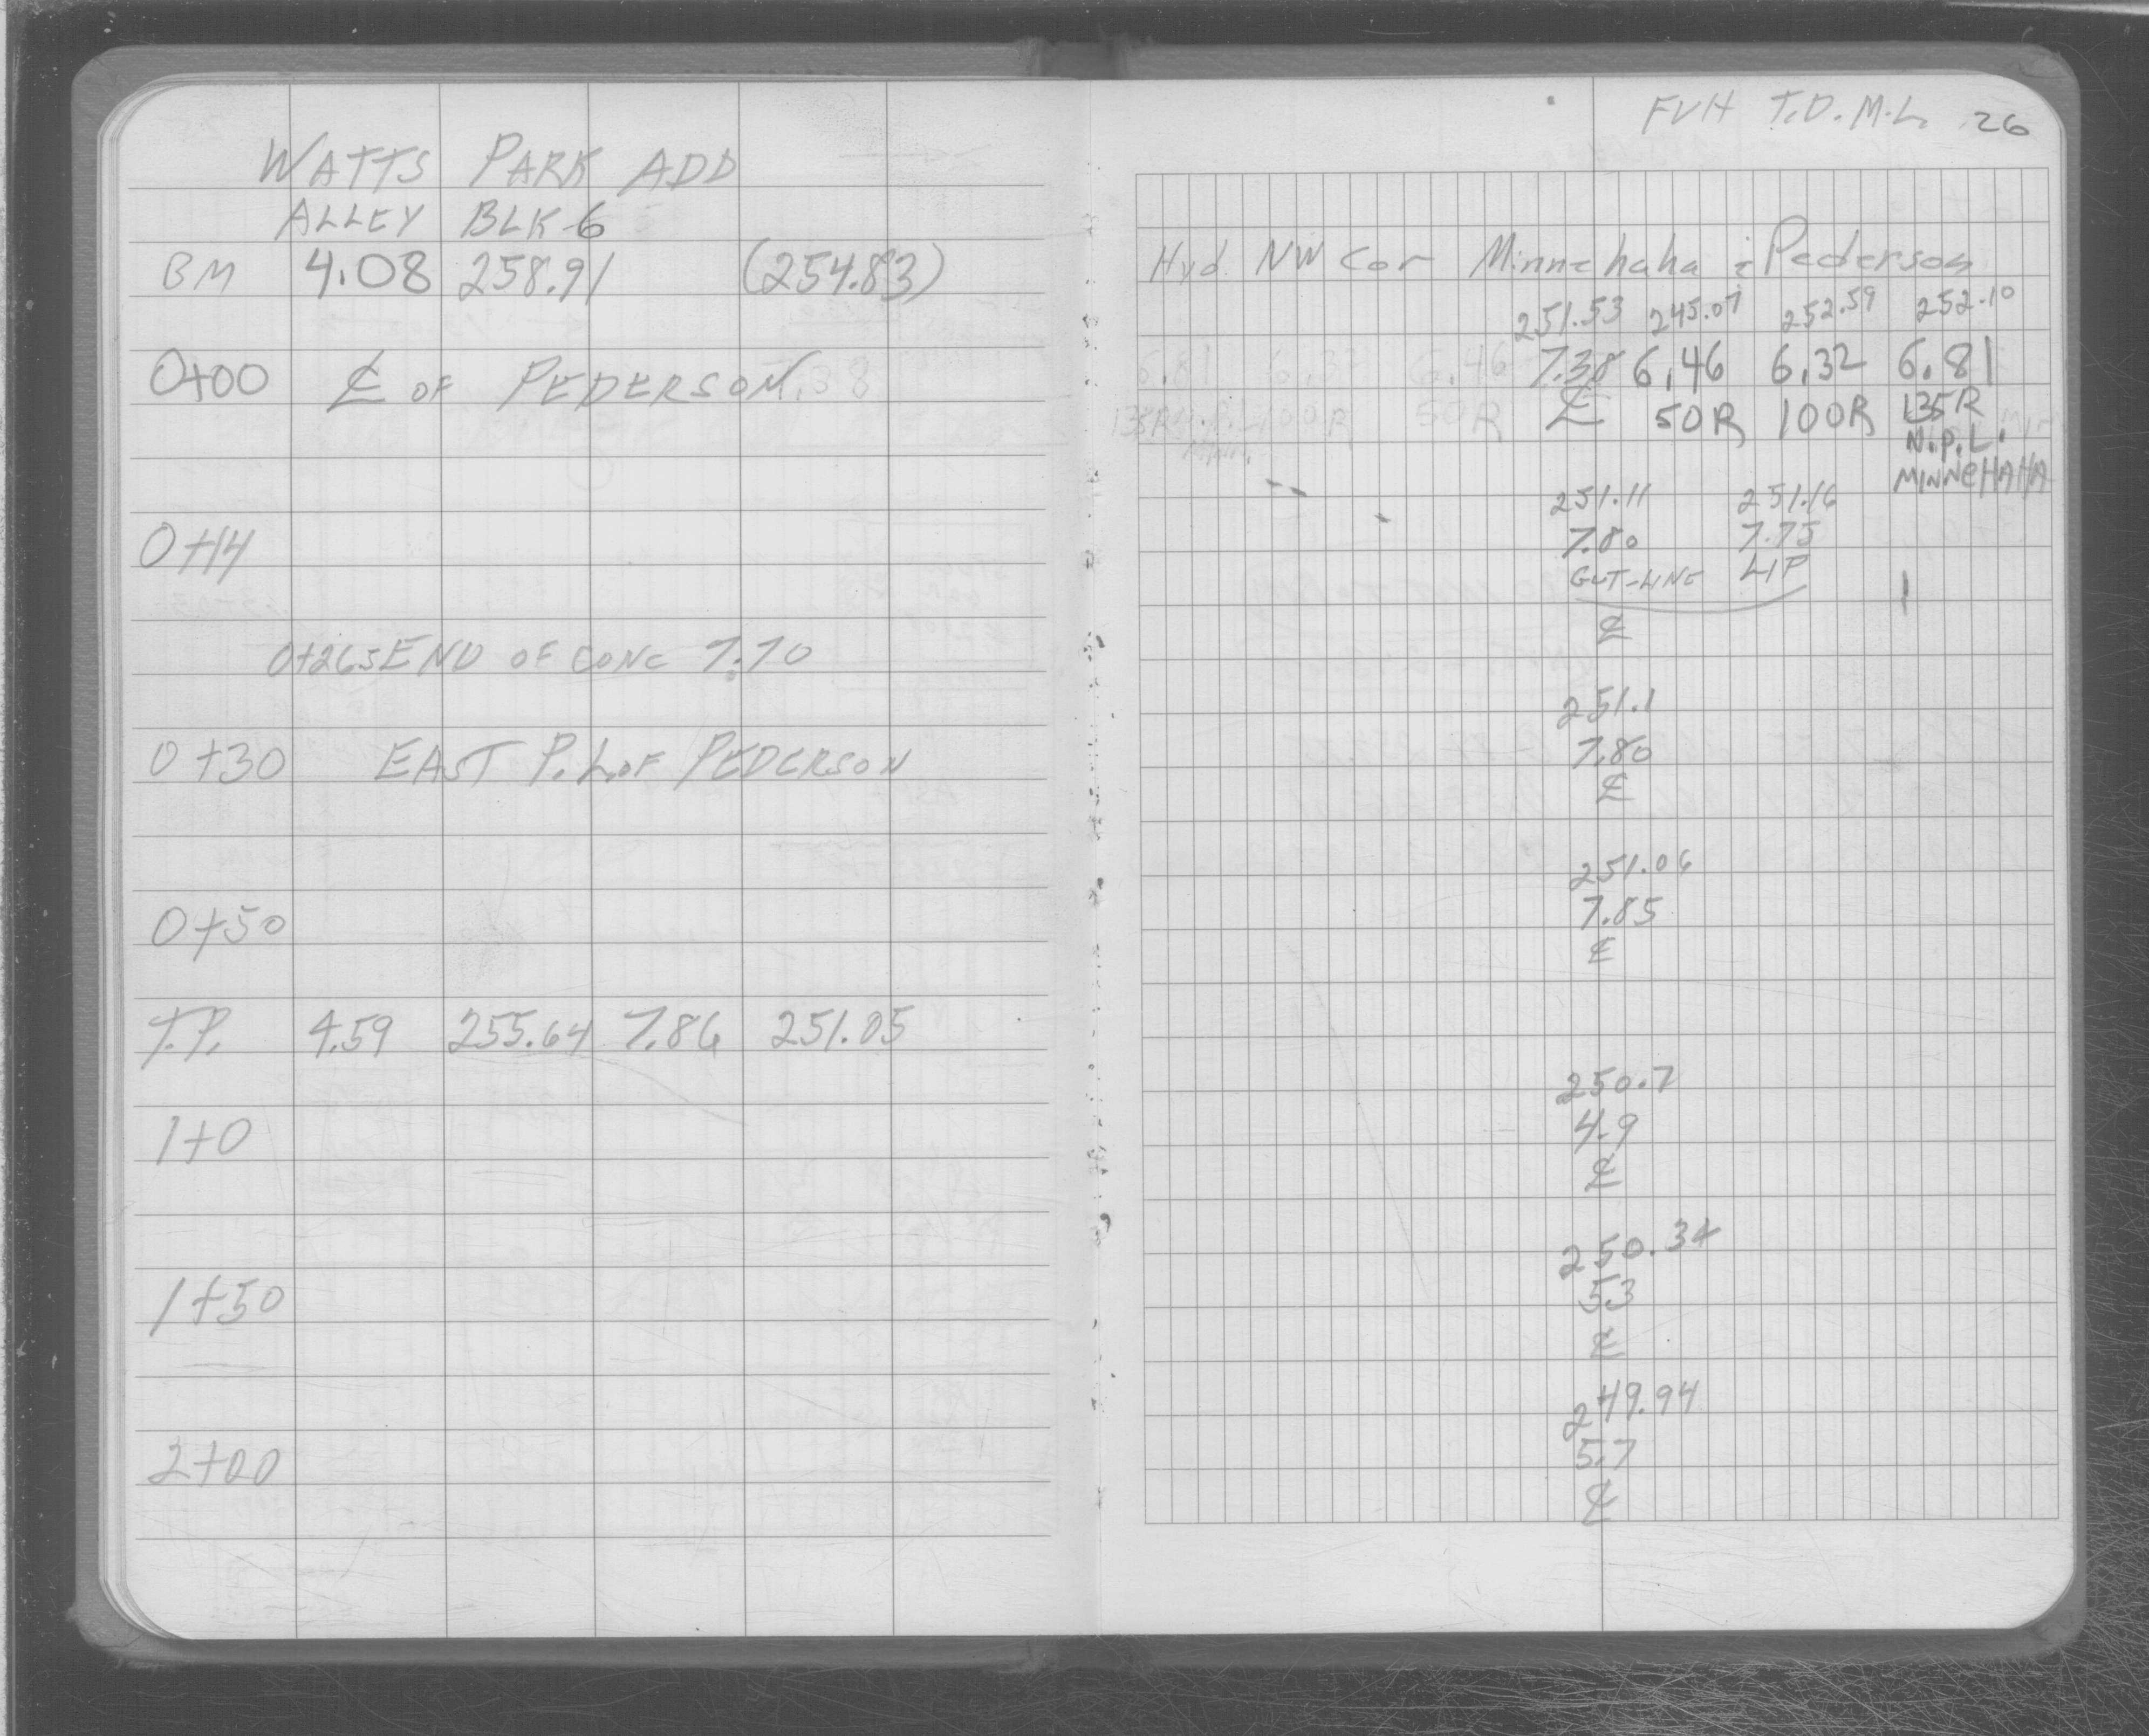 WATTS PARK ADD
ALLEY BLK-6
BM 4.08 258.91 (254.83)
0+00 ℄ OF PEDERSON
0+14
0+265 END OF CONC 7.70
0+30 EAST P.L. OF PEDERSON
0+50
T.P. 4.59 255.64 7.86 251.05
1+0
1+50
2+00
FVH T.D. M.L. 26
Hyd NW Cor Minnehaha & Pederson
251.53 245.07 252.59 252.10
7.38 6.46 6.32 6.81
℄ 50R 100R 135R
N.P.L.
MINNEHAHA
251.11 251.16
7.80 7.75
GUT-LINE LIP
℄
251.1
7.80
℄
251.06
7.85
℄
250.7
4.9
℄
250.34
5.3
℄
249.94
5.7
℄